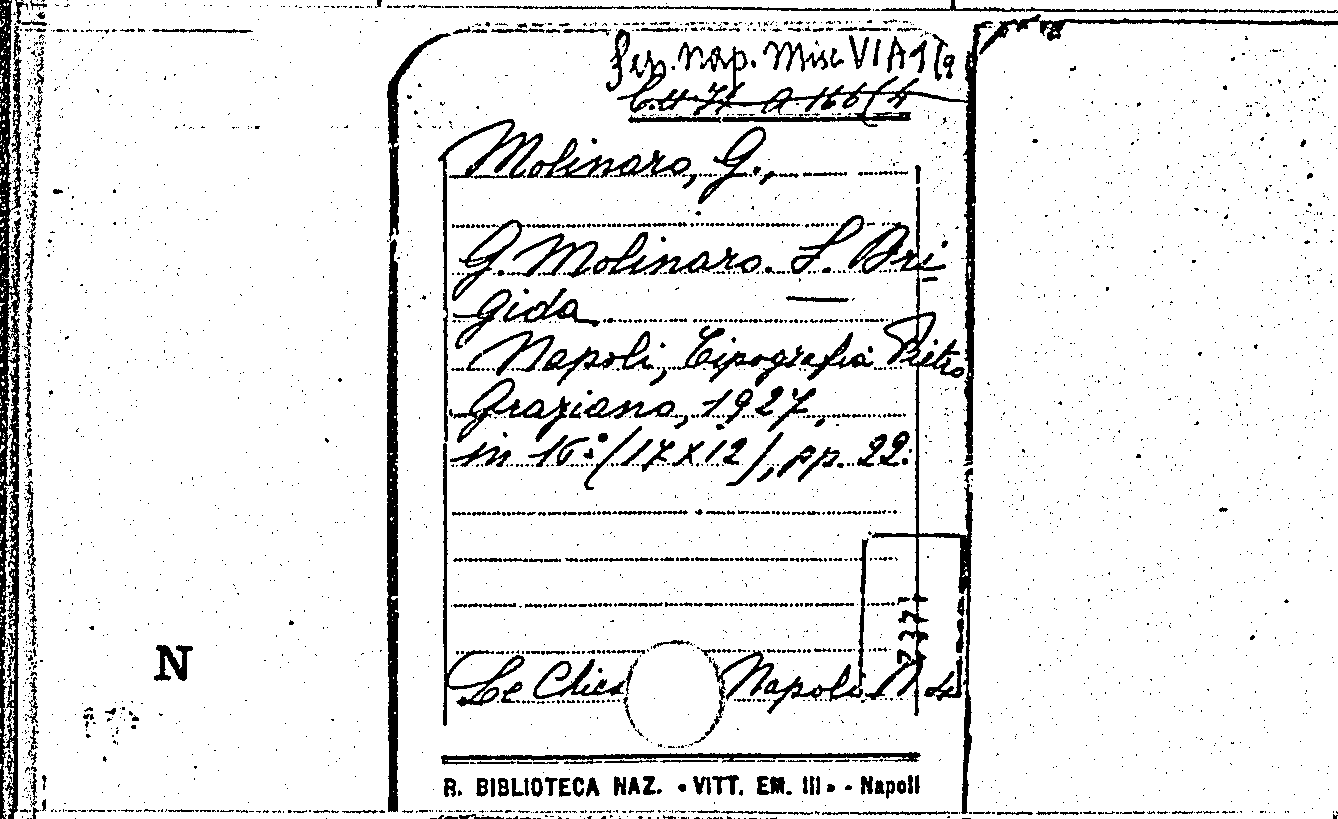 Sez. Nap. Misc VI A 1/9
B.u 71 a 166(4
Molinaro, G.,
G. Molinaro. S. Bri
gida
Napoli, Tipografia Pietro
Graziano, 1927,
in 16:º (17x12), pp. 22.
7371
Le Chies Napoli N 4
R. BIBLIOTECA NAZ. "VITT. EM. III" - Napoli
N